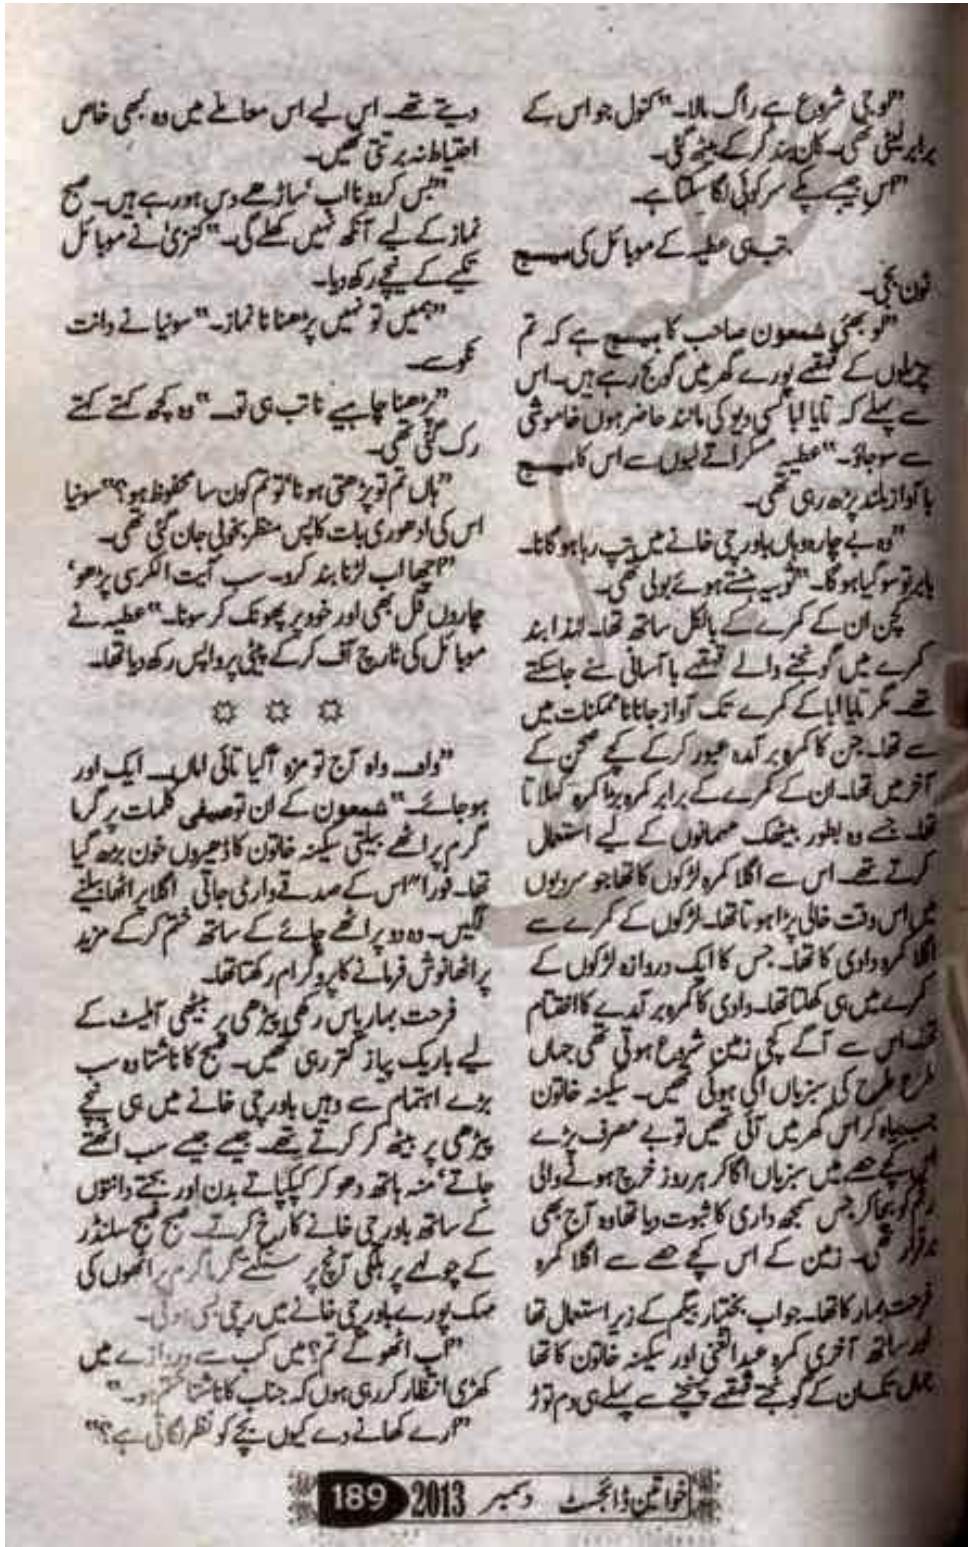 ”لو جی شروع ہے راگ مالا۔“ کنول جو اس کے
برابر لیٹی تھی۔ کان بند کر کے بیٹھ گئی۔
”اس جیسے پکے سر کوئی لگا سکتا ہے۔
تب ہی عطیہ کے موبائل کی میسج
ٹون بجی۔
”لو بھئی شمعون صاحب کا میسج ہے کہ تم
چڑیلوں کے قہقہے پورے گھر میں گونج رہے ہیں۔ اس
سے پہلے کہ تایا ابا کسی دیو کی مانند حاضر ہوں خاموشی
سے سو جاؤ۔“ عطیہ مسکراتے لبوں سے اس کا میسج
با آواز بلند پڑھ رہی تھی۔
”وہ بے چارہ وہاں باورچی خانے میں تپ رہا ہو گا نا۔
بابر تو سو گیا ہو گا۔“ ثوبیہ ہنستے ہوئے بولی تھی۔
کچن ان کے کمرے کے بالکل ساتھ تھا۔ لہٰذا بند
کمرے میں گونجنے والے قہقہے با آسانی سنے جا سکتے
تھے۔ مگر تایا ابا کے کمرے تک آواز جانا ناممکنات میں
سے تھا۔ جن کا کمرہ برآمدہ عبور کر کے کچے صحن کے
آخر میں تھا۔ ان کے کمرے کے برابر کمرہ بڑا کمرہ کہلاتا
تھا۔ جسے وہ بطور بیٹھک مہمانوں کے لیے استعمال
کرتے تھے۔ اس سے اگلا کمرہ لڑکوں کا تھا جو سردیوں
میں اس وقت خالی پڑا ہوتا تھا۔ لڑکوں کے کمرے سے
اگلا کمرہ دادی کا تھا۔ جس کا ایک دروازہ لڑکوں کے
کمرے میں ہی کھلتا تھا۔ دادی کا کمرہ برآمدے کا اختتام
تھا۔ اس سے آگے کچی زمین شروع ہوتی تھی جہاں
طرح طرح کی سبزیاں اگی ہوئی تھیں۔ سکینہ خاتون
جب بیاہ کر اس گھر میں آئی تھیں تو بے مصرف پڑے
اس کچے حصے میں سبزیاں اگا کر ہر روز خرچ ہونے والی
رقم کو بچا کر جس سمجھ داری کا ثبوت دیا تھا وہ آج بھی
برقرار تھی۔ زمین کے اس کچے حصے سے اگلا کمرہ
فرحت بہار کا تھا۔ جو اب بختیار بیگم کے زیر استعمال تھا
اور ساتھ آخری کمرہ عبد الغنی اور سکینہ خاتون کا تھا
جہاں تک ان کے گونجتے قہقہے پہنچنے سے پہلے ہی دم توڑ
دیتے تھے۔ اس لیے اس معاملے میں وہ کبھی خاص
احتیاط نہ برتتی تھیں۔
”بس کرو دو نا اب‘ ساڑھے دس ہو رہے ہیں۔ صبح
نماز کے لیے آنکھ نہیں کھلے گی۔“ کنزیٰ نے موبائل
تکیے کے نیچے رکھ دیا۔
”ہمیں تو نہیں پڑھنا نا نماز۔“ سونیا نے دانت
نکوسے۔
”پڑھنا چاہیے نا تب ہی تو۔“ وہ کچھ کہتے کہتے
رک گئی تھی۔
”ہاں تم تو پڑھتی ہو نا‘ تو تم کون سا محفوظ ہو؟“ سونیا
اس کی ادھوری بات کا پس منظر بخوبی جان گئی تھی۔
”اچھا اب لڑنا بند کرو۔ سب آیت الکرسی پڑھو‘
چاروں قل بھی اور خود پر پھونک کر سونا۔“ عطیہ نے
موبائل کی ٹارچ آف کر کے پیٹی پر واپس رکھ دیا تھا۔
”واہ۔ واہ آج تو مزہ آ گیا تائی اماں۔ ایک اور
ہو جائے۔“ شمعون کے ان توصیفی کلمات پر گرما
گرم پراٹھے بیلتی سکینہ خاتون کا ڈھیروں خون بڑھ گیا
تھا۔ فوراً“ اس کے صدقے واری جاتی اگلا پراٹھا بیلنے
لگیں۔ وہ دو پراٹھے چائے کے ساتھ ختم کر کے مزید
پراٹھا نوش فرمانے کا پروگرام رکھتا تھا۔
فرحت بہار پاس رکھی پیڑھی پر بیٹھی آملیٹ کے
لیے باریک پیاز کتر رہی تھیں۔ صبح کا ناشتا وہ سب
بڑے اہتمام سے وہیں باورچی خانے میں ہی نیچے
پیڑھی پر بیٹھ کر کرتے تھے۔ جیسے جیسے سب اٹھتے
جاتے‘ منہ ہاتھ دھو کر کپکپاتے بدن اور بجتے دانتوں
کے ساتھ باورچی خانے کا رخ کرتے۔ صبح صبح سلنڈر
کے چولہے پر ہلکی آنچ پر سنکتے گرما گرم پراٹھوں کی
مہک پورے باورچی خانے میں رچی بسی ہوتی۔
”اب اٹھو گے تم؟ میں کب سے دروازے میں
کھڑی انتظار کر رہی ہوں کہ جناب کا ناشتا ختم ہو۔“
”ارے کھانے دے کیوں بچے کو نظر لگاتی ہے؟“
خواتین ڈائجسٹ دسمبر 2013 189